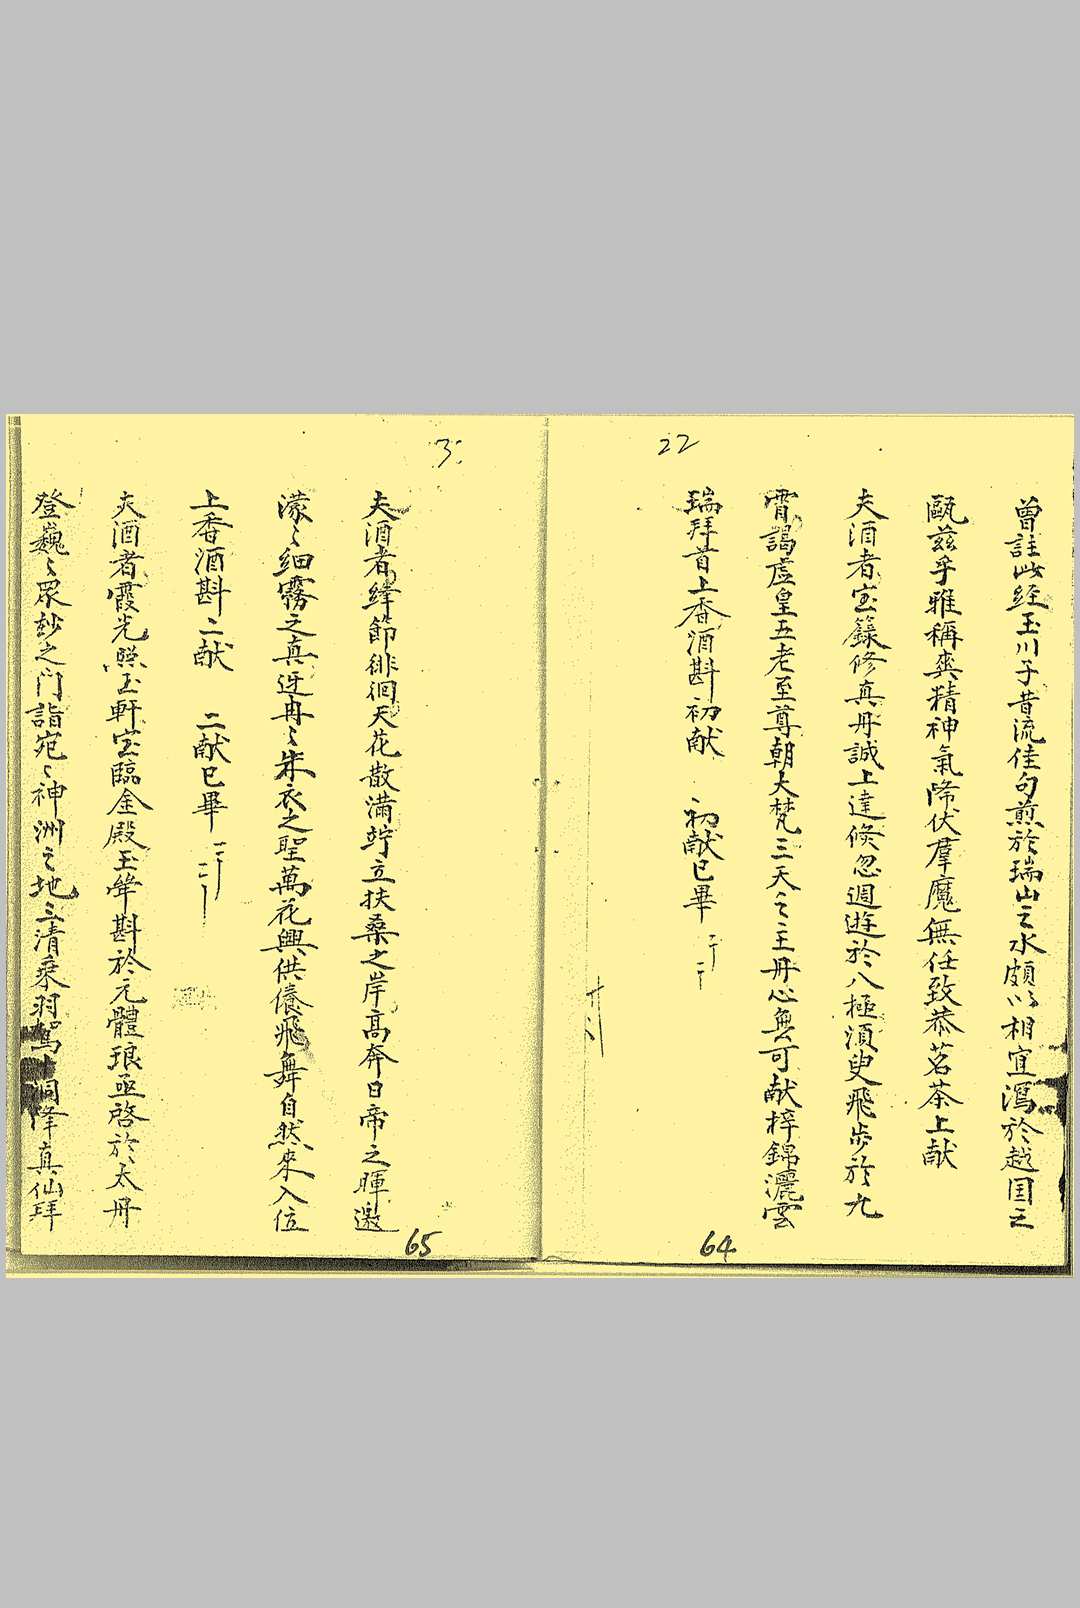 22
曾註此经玉川子昔流佳句煎於瑞山之水頗以相宜瀉於越国之
甌兹乎雅稱爽精神氣降伏羣魔無任致恭茗茶上献
夫酒者宝籙修真丹誠上達倐忽週遊於八極湏臾飛步於九
霄謁虚皇五老至尊朝大梵三天之王丹心無可献梓錦灑雲
瑞拜首上香酒斟初献 初献已畢
64
3
夫酒者絳節徘徊天花散滿竚立扶桑之岸高奔日帝之暉邀
濛〻细霧之真迓冉〻朱衣之聖萬花興供僊飛舞自然來入位
上香酒斟二献 二献已畢
夫酒者霞光照玉軒宝臨金殿玉斝斟於元體琅亟啓於太丹
登巍〻眾玅之门詣宛〻神洲之地三清乘羽駕十洞降真仙拜
65